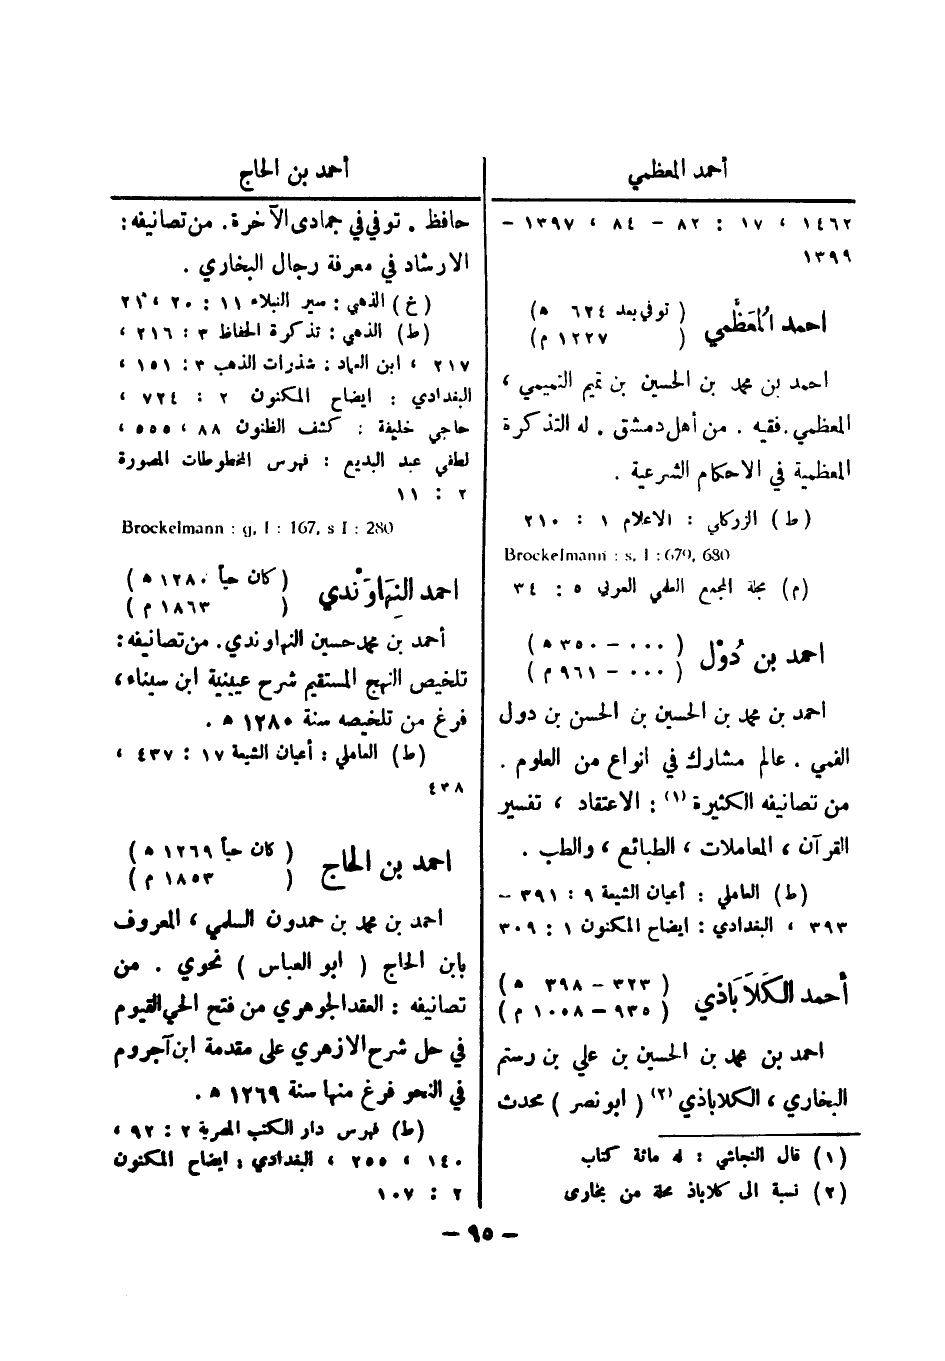 أحمد المعظمي
١٤٦٢ ، ١٧ : ٨٢ – ٨٤ ، ١٣٩٧ –
١٣٩٩
احمد المُعَظَّمي ( توفي بعد ٦٢٤ ه )
( ١٢٢٧ م )
احمد بن محمد بن الحسين بن تميم التميمي ،
المعظمي . فقيه . من أهل دمشق . له التذكرة
المعظمية في الاحكام الشرعية .
( ط ) الزركلي : الاعلام ١ : ٢١٠
Brockelmann : s, I : 679, 680
( م ) مجلة المجمع العلمي العربي ٥ : ٣٤
احمد بن دُوْل ( ٠٠٠ – ٣٥٠ ه )
( ٠٠٠ – ٩٦١ م )
احمد بن محمد بن الحسين بن الحسن بن دول
القمي . عالم مشارك في انواع من العلوم .
من تصانيفه الكثيرة (١) : الاعتقاد ، تفسير
القرآن ، المعاملات ، الطبائع ، والطب .
( ط ) العاملي : أعيان الشيعة ٩ : ٣٩١ –
٣٩٣ ، البغدادي : ايضاح المكنون ١ : ٣٠٩
أحمد الكَلَابَاذي ( ٣٢٣ – ٣٩٨ ه )
( ٩٣٥ – ١٠٠٨ م )
احمد بن محمد بن الحسين بن علي بن رستم
البخاري ، الكلاباذي (٢) ( ابو نصر ) محدث
(١) قال النجاشي : له مائة كتاب
(٢) نسبة الى كلاباذ محلة من بخارى
أحمد بن الحاج
حافظ . توفي في جمادى الآخرة . من تصانيفه :
الارشاد في معرفة رجال البخاري .
( خ ) الذهبي : سير النبلاء ١١ : ٢٠ ، ٢١
( ط ) الذهبي : تذكرة الحفاظ ٣ : ٢١٦ ،
٢١٧ ، ابن العماد : شذرات الذهب ٣ : ١٥١ ،
البغدادي : ايضاح المكنون ٢ : ٧٢٤ ،
حاجي خليفة : كشف الظنون ٨٨ ، ٥٥٥ ،
لطفي عبد البديع : فهرس المخطوطات المصورة
٢ : ١١
Brockelmann : g, I : 167, s I : 280
احمد النِهَاوَنْدي ( كان حياً ١٢٨٠ ه )
( ١٨٦٣ م )
أحمد بن محمد حسين النهاوندي . من تصانيفه :
تلخيص النهج المستقيم شرح عيبنية ابن سيناء ،
فرغ من تلخيصه سنة ١٢٨٥ ه .
( ط ) العاملي : أعيان الشيعة ١٧ : ٤٣٧ ،
٤٣٨
احمد بن الحاج ( كان حياً ١٢٦٩ ه )
( ١٨٥٣ م )
احمد بن محمد بن حمدون السلمي ، المعروف
بابن الحاج ( ابو العباس ) نحوي . من
تصانيفه : العقد الجوهري من فتح الحي القيوم
في حل شرح الازهري على مقدمة ابن آجروم
في النحو فرغ منها سنة ١٢٦٩ ه .
( ط ) فهرس دار الكتب المصرية ٢ : ٩٢ ،
١٤٠ ، ٢٥٥ ، البغدادي : ايضاح المكنون
٢ : ١٠٧
– ٩٥ –